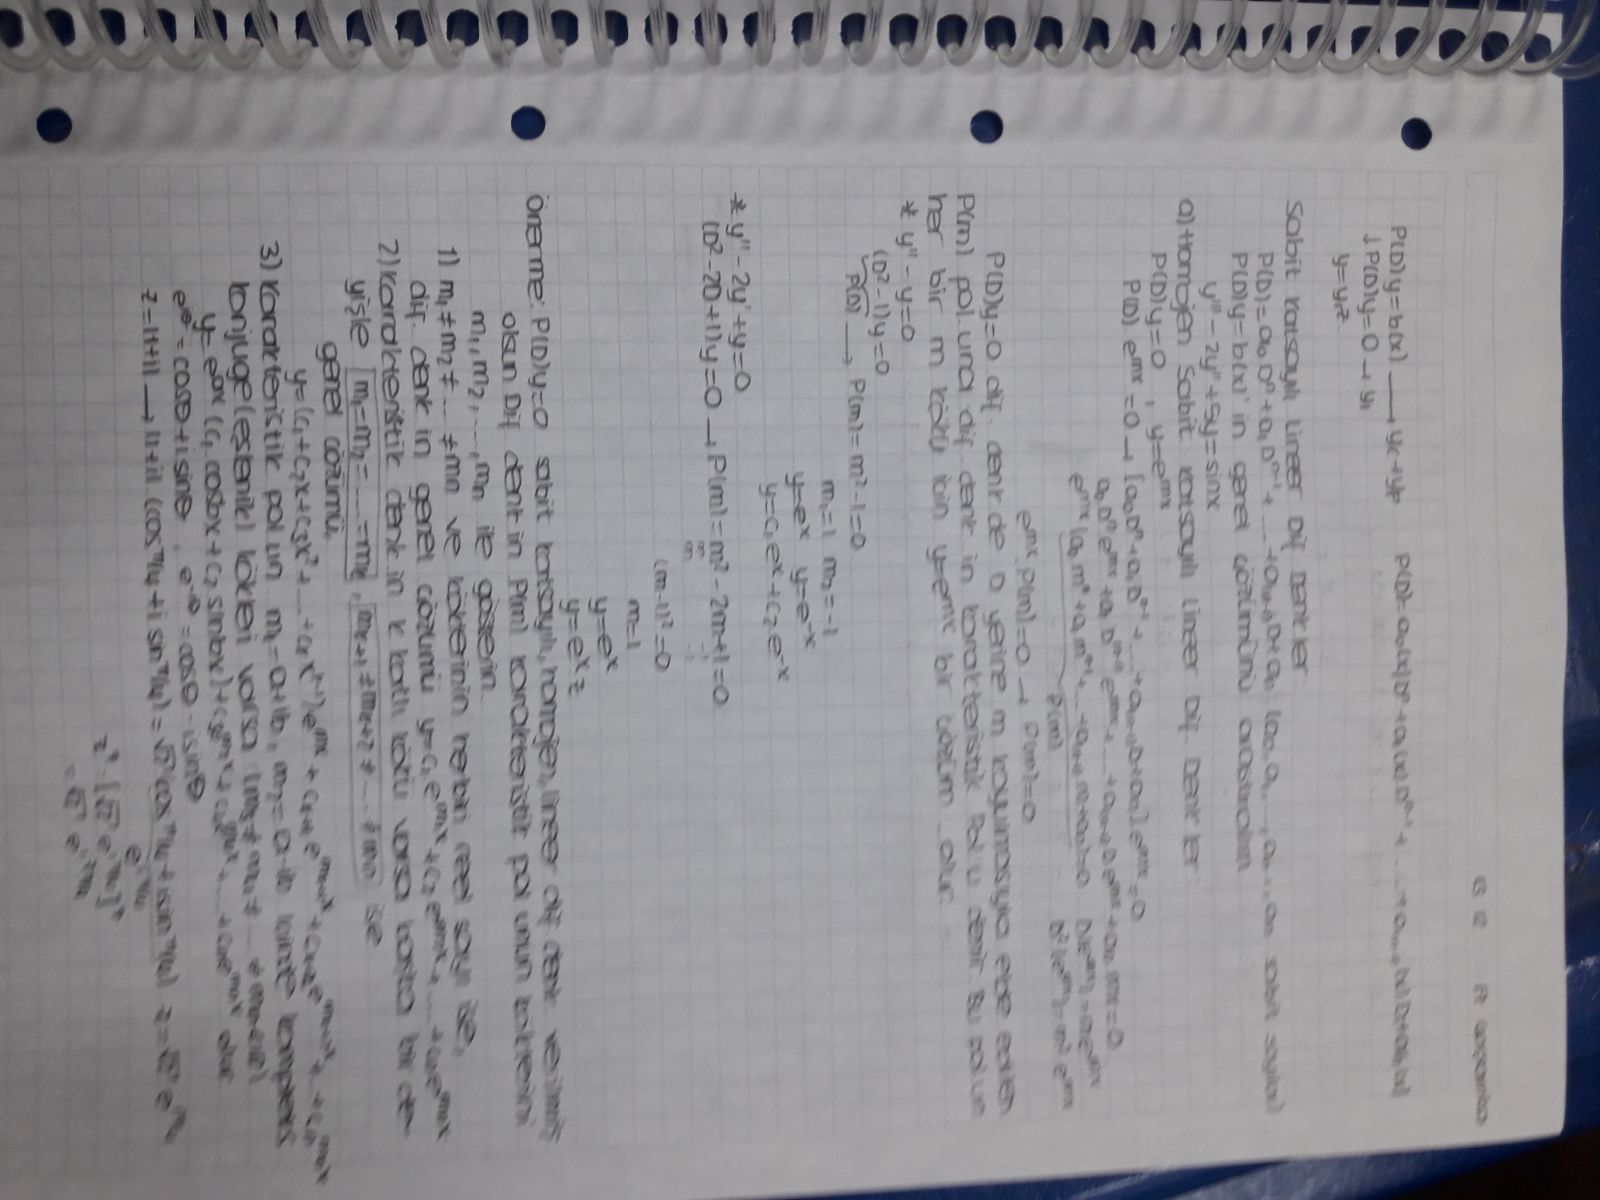 13 12 Çarşamba
P(D)y=b(x) → yc+yp P(D)=a0(x)Dⁿ+a1(x)Dⁿ⁻¹+.....+an-1(x)D+an(x)
↓P(D)y=0 → y1
y=y1z
Sabit katsayılı Lineer Dif Denkler
P(D)=a0Dⁿ+a1Dⁿ⁻¹+....+an-1D+an (a0,a1,...,an sabit sayılar)
P(D)y=b(x) in genel çözümünü araştıralım
y'''-2y''+5y=sinx
a) Homojen Sabit Katsayılı Lineer Dif. Denkler
P(D)y=0 , y=e^mx
P(D) e^mx=0 → [a0Dⁿ+a1Dⁿ⁻¹+....+an-1D+an] e^mx=0
a0Dⁿe^mx+a1Dⁿ⁻¹e^mx+....+an-1De^mx+an e^mx=0
e^mx(a0mⁿ+a1mⁿ⁻¹+....+an-1m+an)=0 D(e^mx)=me^mx
P(m) D²(e^mx)=m² e^mx
e^mx.P(m)=0 → P(m)=0
P(D)y=0 dif. denk de D yerine m koyulmasıyla elde edilen
P(m) pol.una dif. denk in karakteristik Pol u denir. Bu pol un
her bir m kökü için y=e^mx bir çözüm olur.
* y''-y=0
(D²-1)y=0
P(D) → P(m)=m²-1=0
m1=1 m2=-1
y=e^x y=e^-x
y=c1e^x+c2e^-x
* y''-2y'+y=0
(D²-2D+1)y=0 → P(m)=m²-2m+1=0
m -1
m -1
(m-1)²=0
m=1
y=e^x
y=e^x z
Önerme: P(D)y=0 sabit katsayılı, homojen, lineer dif denk. verilmiş
olsun Dif denk in P(m) karakteristik pol unun köklerini
m1,m2,...,mn ile gösterin.
1) m1≠m2≠...≠mn ve köklerinin herbiri reel sayı ise,
dif. denk in genel çözümü y=c1e^m1x+c2e^m2x+....+cne^mnx
2) Karakteristik denk in k katlı kökü varsa başka bir de-
yişle m1=m2=....=mk , mk+1≠mk+2≠....≠mn ise
genel çözümü,
y=(c1+c2x+c3x²+...+ckx^k-1)e^mx+ck+1e^mk+1x+ck+2e^mk+2x+...+cne^mnx
3) Karakteristik pol un m1=a+ib, m2=a-ib kompleks
konjuge(eşlenik) kökleri varsa (m3≠m4≠ ≠mn
y=e^ax(c1.cosbx+c2.sinbx)+c3e^m3x+c4e^m4x+...+cne^mnx olur
e^iθ=cosθ+isinθ , e^-iθ=cosθ-isinθ
z=|1+i| → |1+i| (cosπ/4+i sinπ/4)=√2(cosπ/4+isinπ/4) z=√2 e^iπ/4
e^iπ/4